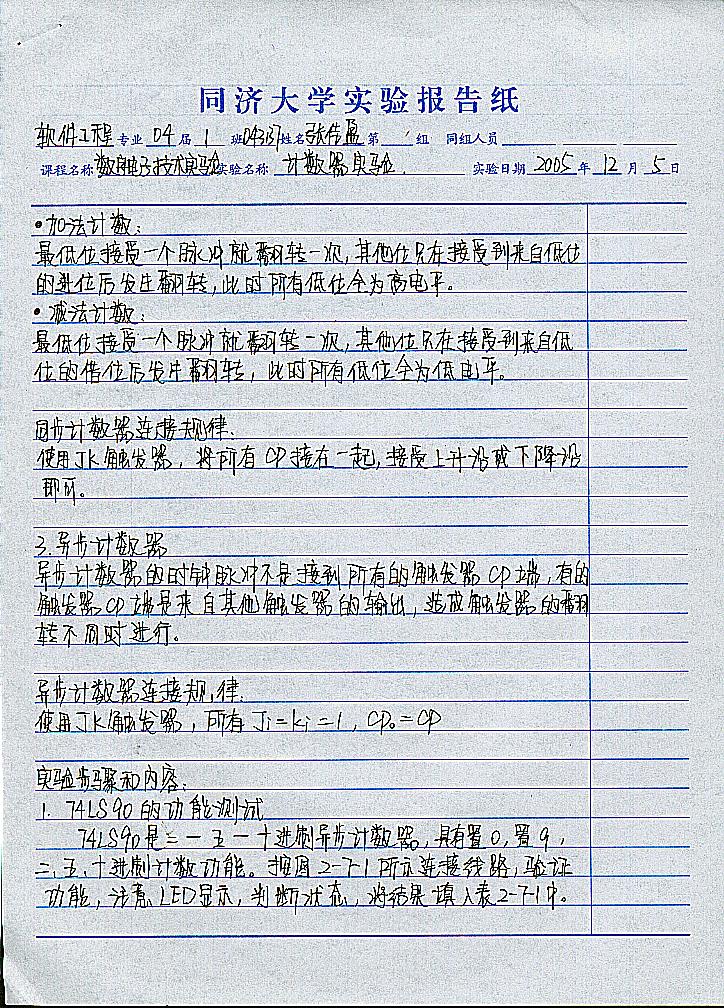 同济大学实验报告纸
软件工程 专业 04 届 1 班 姓名 张佳盈 第 组 同组人员
课程名称 数字电子技术实验 实验名称 计数器实验 实验日期 2005 年 12 月 5 日
•加法计数：
最低位接受一个脉冲就翻转一次，其他位只在接受到来自低位
的进位后发生翻转，此时所有低位全为高电平。
•减法计数：
最低位接受一个脉冲就翻转一次，其他位只在接受到来自低
位的借位后发生翻转，此时所有低位全为低电平。
同步计数器连接规律：
使用JK触发器，将所有CP接在一起，接受上升沿或下降沿
即可。
3.异步计数器
异步计数器的时钟脉冲不是接到所有的触发器CP端，有的
触发器CP端是来自其他触发器的输出，造成触发器的翻
转不同时进行。
异步计数器连接规律：
使用JK触发器，所有Ji=Ki=1，CP₀=CP
实验步骤和内容：
1. 74LS90的功能测试
74LS90是二一五一十进制异步计数器，具有置0，置9，
二、五、十进制计数功能。按图2-7-1所示连接线路，验证
功能，注意LED显示，判断状态，将结果填入表2-7-1中。